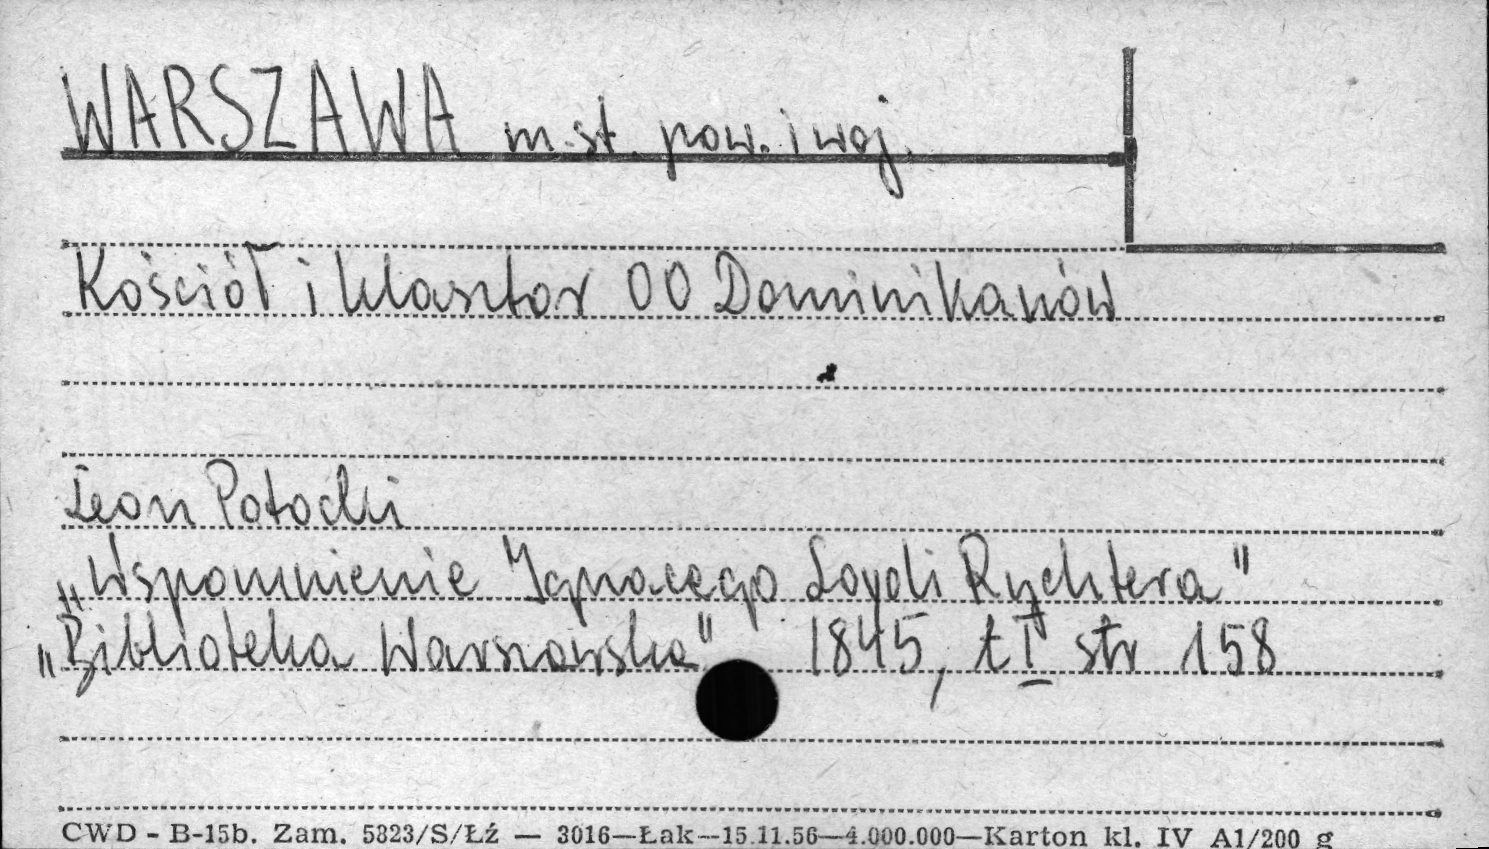 WARSZAWA m.st. pow. i woj.
Kościół i klasztor OO Dominikanów
Leon Potocki
„Wspomnienie Ignacego Loyoli Rychtera"
„Biblioteka Warszawska" 1845, t I str 158
CWD - B-15b. Zam. 5323/S/Łź — 3016—Łak—15.11.56—4.000.000—Karton kl. IV A1/200 g